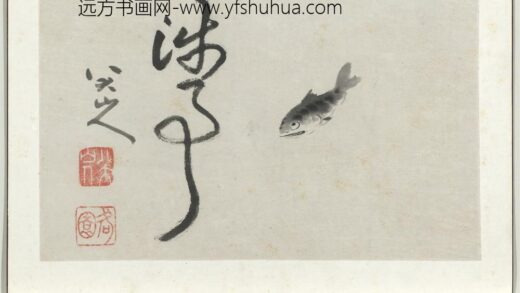 远方书画网-www.yfshuhua.com
涉事
八大山人